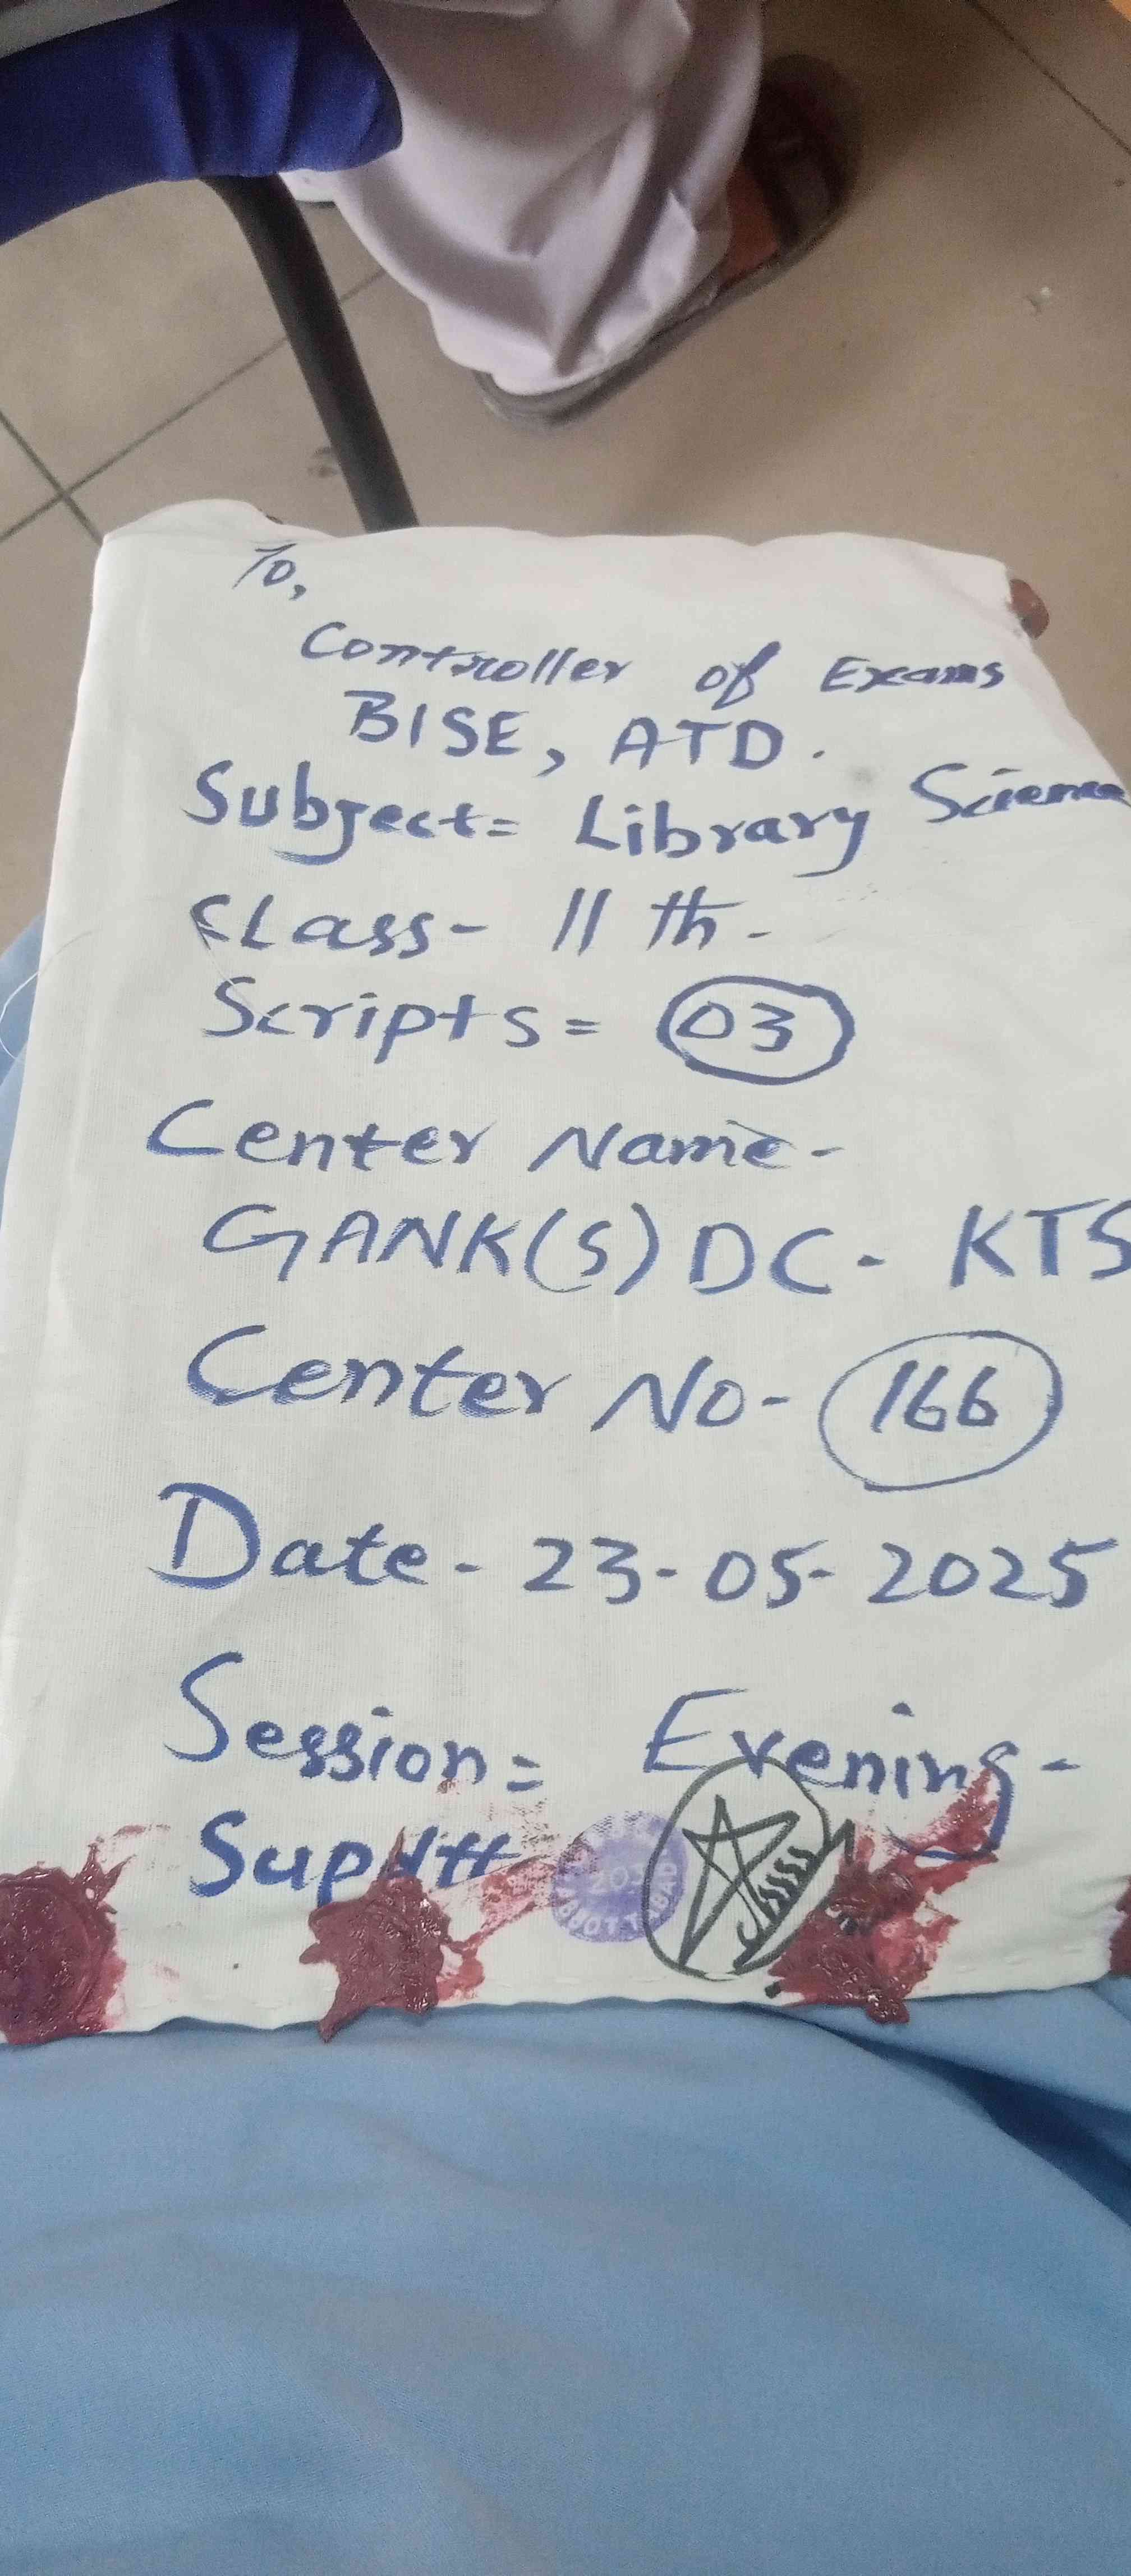 To,
Controller of Exams
BISE, ATD.
Subject= Library Science
Class- 11 th-
Scripts= 03
Center Name-
GANK(S) DC- KTS
Center No- 166
Date- 23-05-2025
Session= Evening-
Supdtt
203
ABBOTTABAD